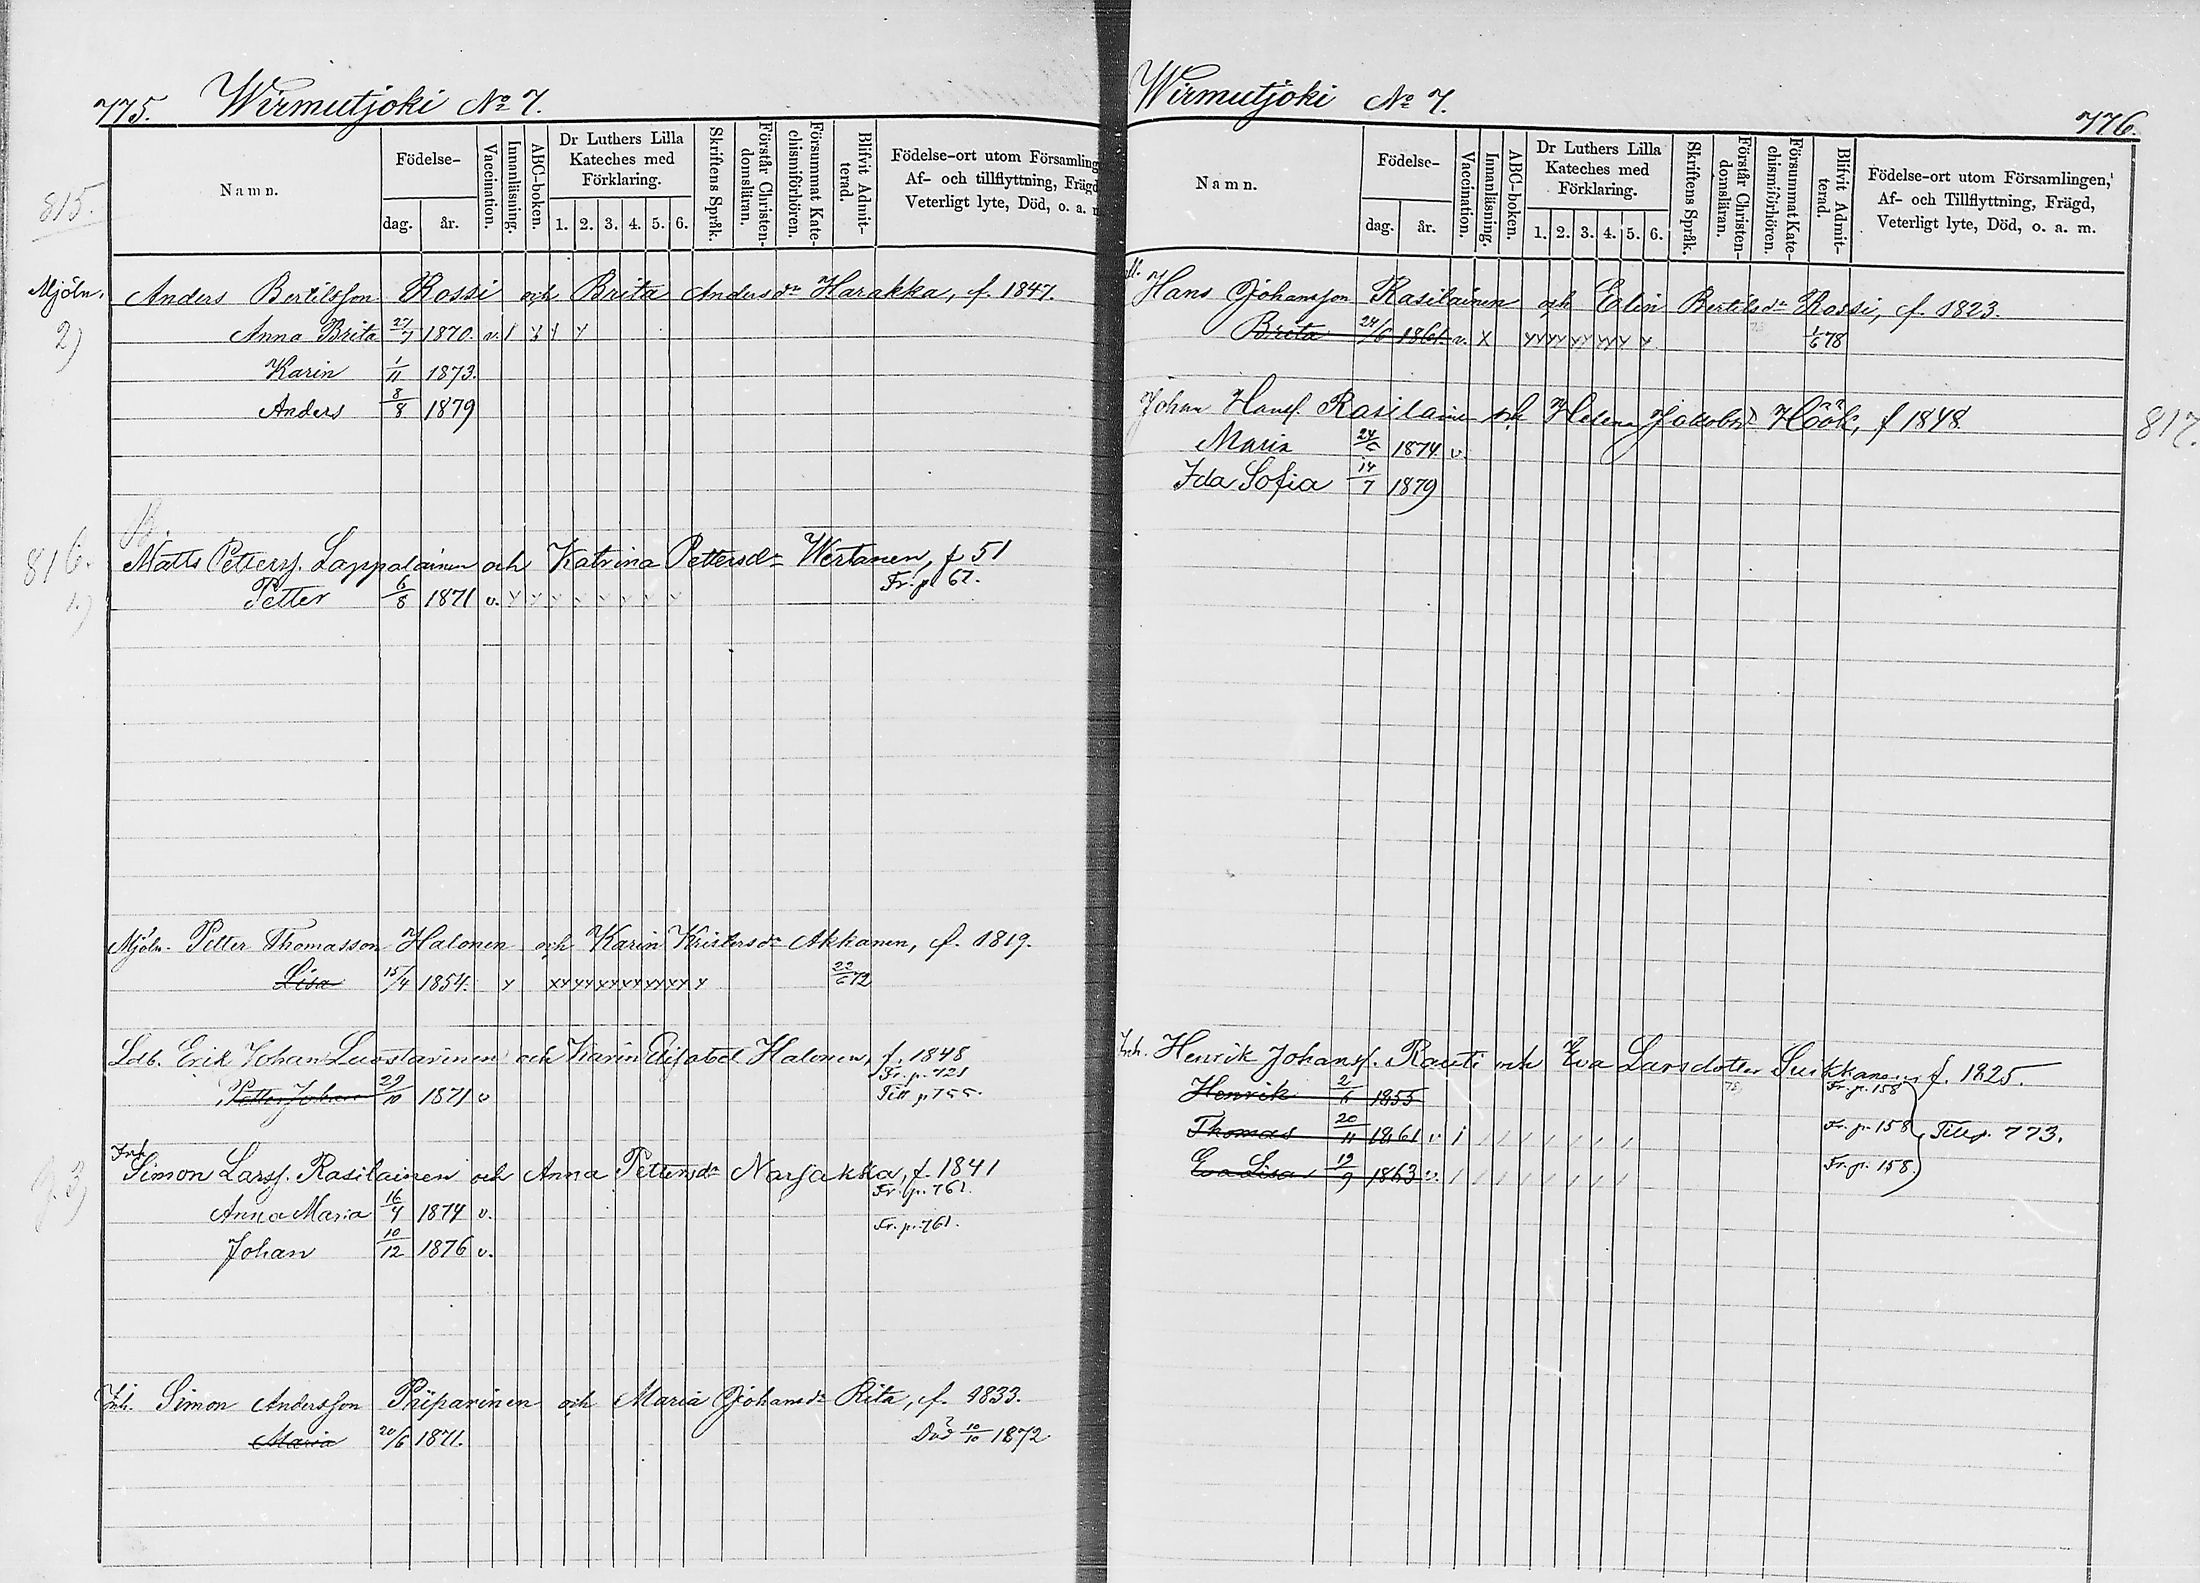 775. Wirmutjoki No 7.
Namn.
Födelse-
dag.
år.
Vaccination.
Innanläsning.
ABC-boken.
Dr Luthers Lilla
Kateches med
Förklaring.
1. 2. 3. 4. 5. 6.
Skriftens Språk.
Förstår Christen-
domsläran.
Försummat Kate-
chismiförhören.
Blifvit Admit-
terad.
Födelse-ort utom Församling
Af- och tillflyttning, Frägd
Veterligt lyte, Död, o. a.
815.
Mjöln. Anders Bertilsson Rossi och Brita Andersdr Harakka, f. 1847.
2) Anna Brita 27/7 1870. v.
Karin 1/11 1873.
Anders 8/8 1879
816. Matts Petterss. Lappalainen och Katrina Pettersdr Wertanen, f 51
1.) Petter 6/8 1871 v. Fr. p 67.
Mjöln. Petter Thomasson Halonen och Karin Kristersdr Akkanen, f. 1819.
Lisa 15/4 1854. 22/6 72
Ldb. Erik Johan Luostarinen och Karin Elisabet Halonen, f. 1848
Fr. p. 721
Petter Johan 29/10 1871 v Till p 755.
Inh.
Simon Larss. Rasilainen och Anna Pettersdr Narjakka, f. 1841
3) Fr. p. 761.
Anna Maria 16/4 1874 v. Fr. p. 761.
Johan 10/12 1876 v.
Inh. Simon Andersson Piiparinen och Maria Johansdr Rita, f. 1833.
Maria 20/6 1871. Död 10/10 1872
Wirmutjoki No 7. 776.
Namn.
Födelse-
dag.
år.
Vaccination.
Innanläsning.
ABC-boken.
Dr Luthers Lilla
Kateches med
Förklaring.
1. 2. 3. 4. 5. 6.
Skriftens Språk.
Förstår Christen-
domsläran.
Försummat Kate-
chismiförhören.
Blifvit Admit-
terad.
Födelse-ort utom Församlingen,
Af- och Tillflyttning, Frägd,
Veterligt lyte, Död, o. a. m.
Hans Johansson Rasilainen och Eolin Bertilsdr Rossi, f. 1823.
Brita 24/6 1861 v. x 1/6 78
Johan Hanss. Rasilainen och Helena Jakobsd. Höök, f 1848. 817.
Maria 1874 v.
Ida Sofia 14/7 1879
Inh. Henrik Johanss. Rauti och Eva Larsdotter Suikkanen f. 1825.
Henrik 1855 Fr. p. 158
Thomas 20/11 1861 v. Fr. p. 158 Till p. 773.
Eva Lisa 19/9 1863 v. Fr. p. 158.